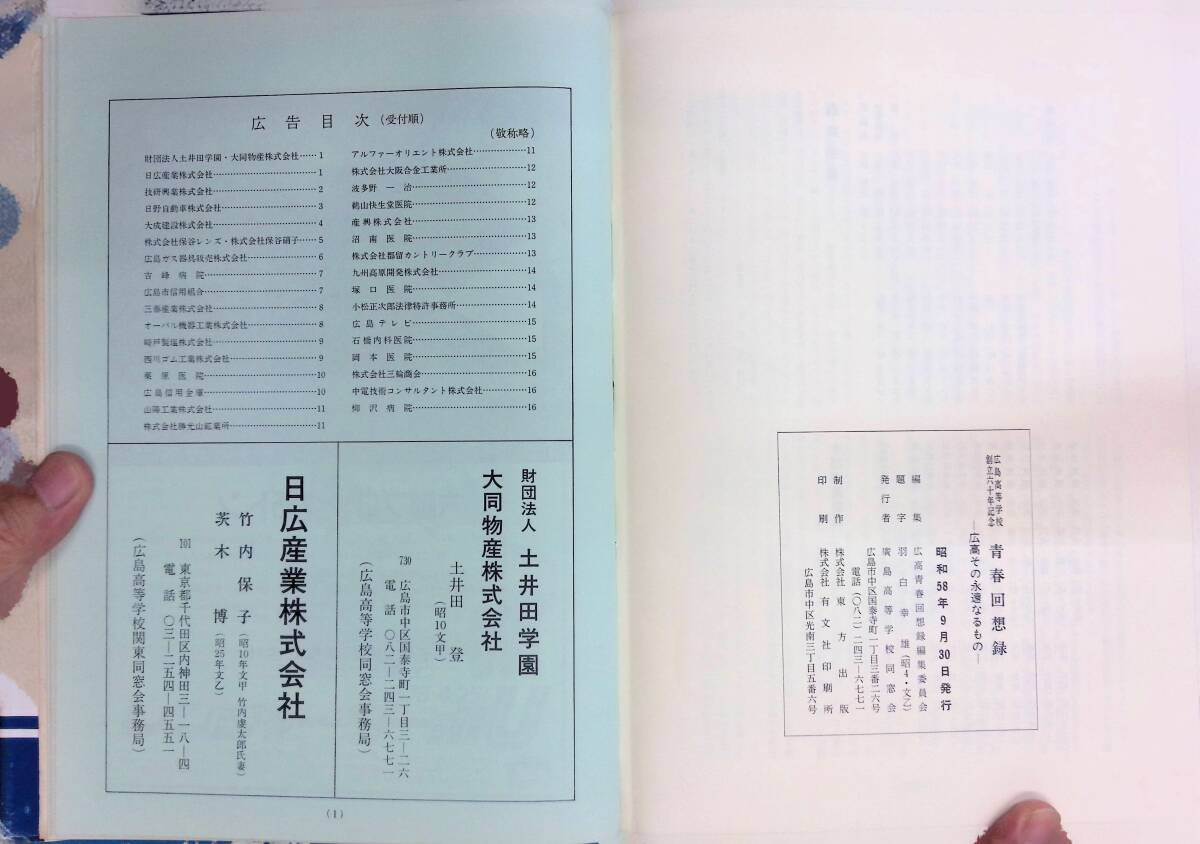 広告目次(受付順)
(敬称略)
財団法人土井田学園・大同物産株式会社……1
日広産業株式会社……1
技研興業株式会社……2
日野自動車株式会社……3
大成建設株式会社……4
株式会社保谷レンズ・株式会社保谷硝子……5
広島ガス器具販売株式会社……6
吉峰病院……7
広島市信用組合……7
三泰産業株式会社……8
オーバル機器工業株式会社……8
崎戸製塩株式会社……9
西川ゴム工業株式会社……9
栗原医院……10
広島信用金庫……10
山陽工業株式会社……11
株式会社勝光山鉱業所……11
アルファーオリエント株式会社……11
株式会社大阪合金工業所……12
波多野一治……12
鶴山快生堂医院……12
産興株式会社……13
沼南医院……13
株式会社都留カントリークラブ……13
九州高原開発株式会社……14
塚口医院……14
小松正次郎法律特許事務所……14
広島テレビ……15
石橋内科医院……15
岡本医院……15
株式会社三輪商会……16
中電技術コンサルタント株式会社……16
柳沢病院……16
財団法人 土井田学園
大同物産株式会社
土井田 登
(昭10文甲)
730 広島市中区国泰寺町一丁目三―二六
電話 〇八二―二四三―六七七一
(広島高等学校同窓会事務局)
日広産業株式会社
竹内保子(昭10年文甲 竹内虔太郎氏妻)
茨木 博(昭25年文乙)
101 東京都千代田区内神田三―一八―四
電話 〇三―二五四―四五五一
(広島高等学校関東同窓会事務局)
(1)
広島高等学校
創立六十年記念
青春回想録
―広高その永遠なるもの―
昭和58年9月30日発行
編集 広高青春回想録編集委員会
題字 羽白幸雄(昭4・文乙)
発行者 廣島高等学校同窓会
広島市中区国泰寺町一丁目三番二六号
電話(〇八二)二四三―六七七一
制作 株式会社東方出版
印刷 株式会社有文社印刷所
広島市中区光南三丁目五番六号